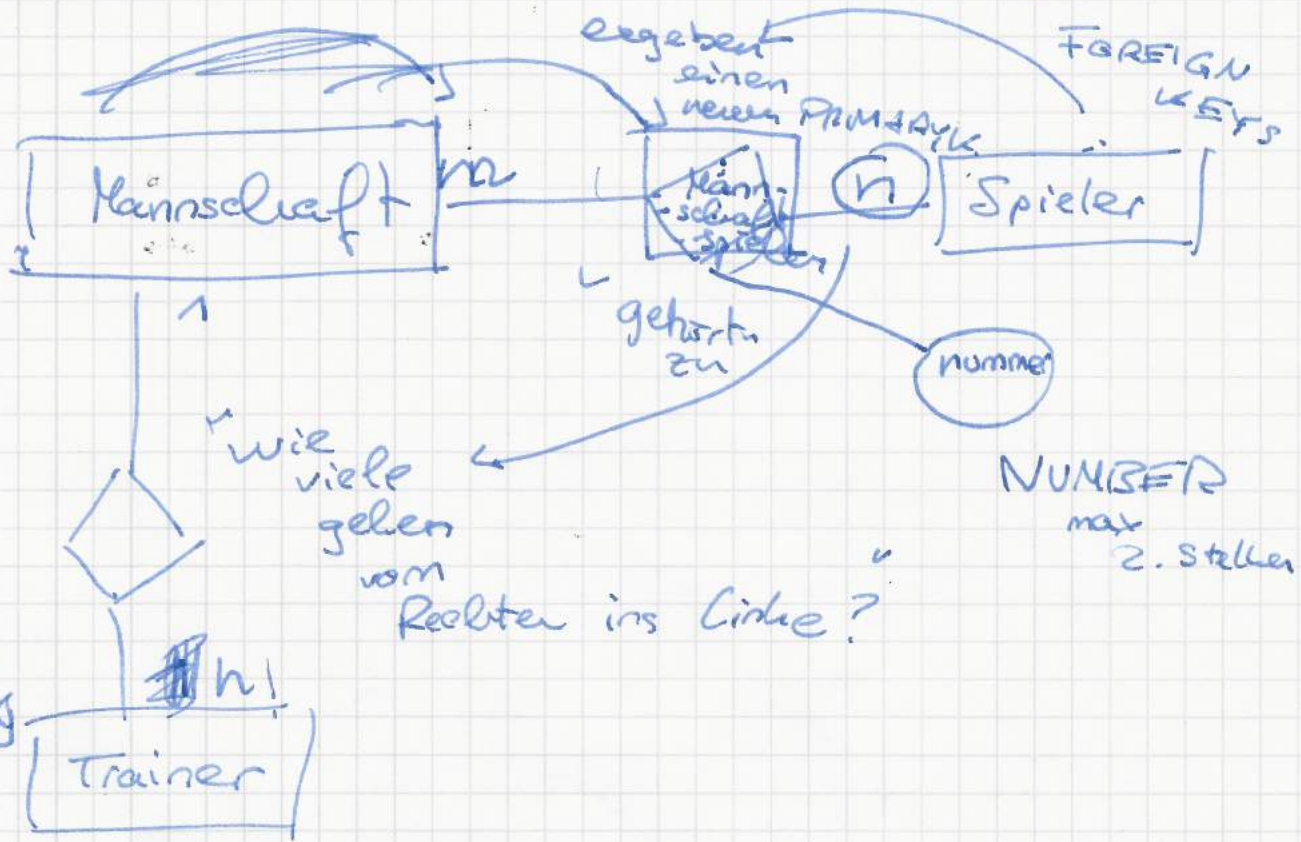 ergeben
einen
neuen PRIMARYK
FOREIGN
KEYS
Mannschaft
m
Mann-
schaft
spieler
n
Spieler
1
gehört
zu
nummer
"Wie
viele
gehen
vom
Rechten ins Linke?"
NUMBER
max
2. Stellen
n
Trainer